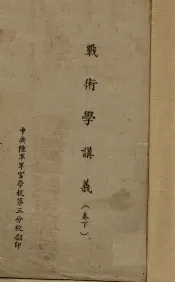 戰術學講義（卷下）
中央陸軍軍官學校第三分校翻印